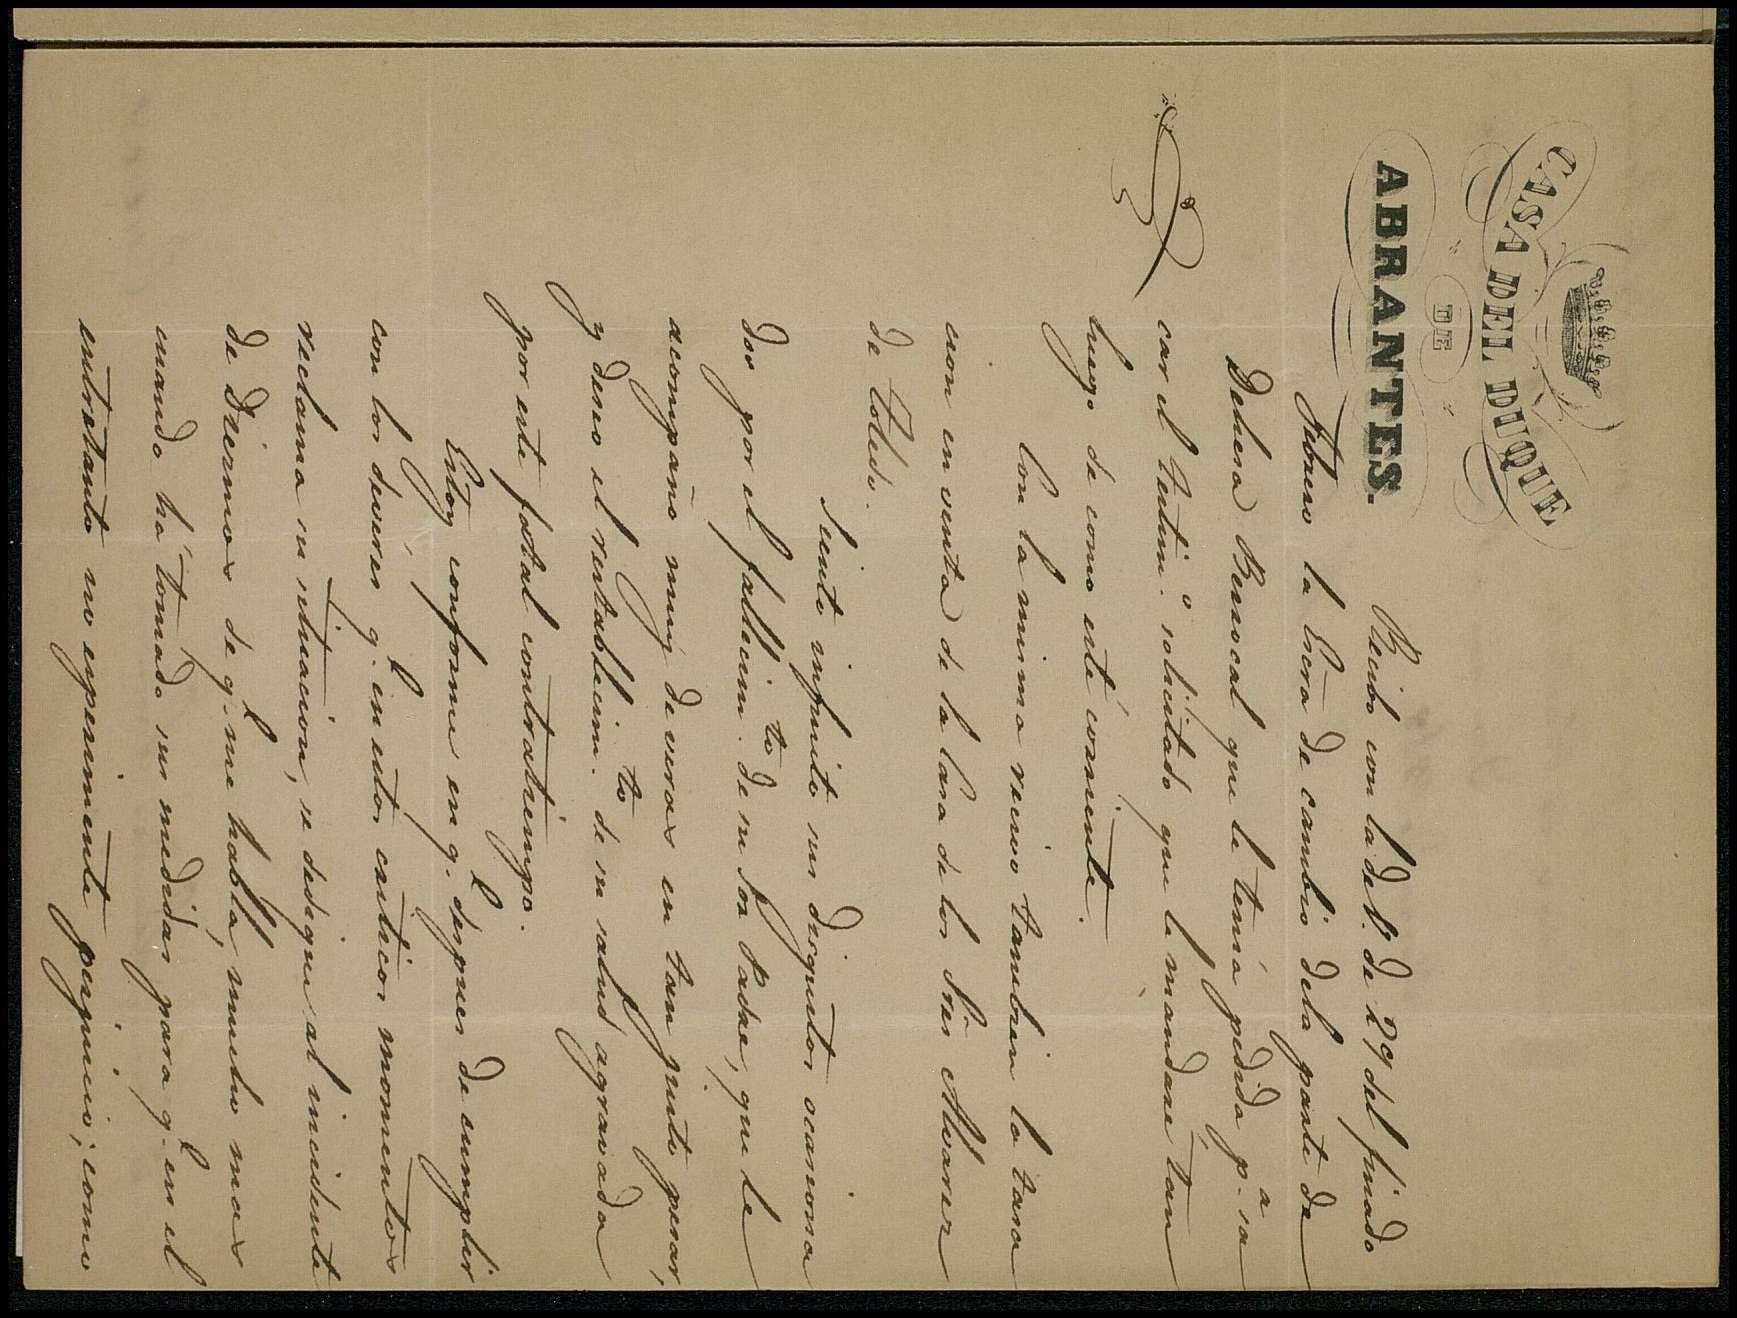 CASA DEL DUQUE
DE
ABRANTES.
Recibo con la de V. de 29 del finado
Febrero la Escra de cambio dela parte de
Dehesa Berrocal que le tenia pedida p.ª sa
car el testim.º solicitado que le mandaré tan
luego de como esté corriente.
Con la misma recivo tambien la tasa
cion en venta de la Casa de los Sres Alvarez
de Toledo.
Siento infinito sus disgustos ocasiona
dos por el fallecim.to de su Sor Padre, que le
acompaño muy de veras en tan justo pesar,
y deseo el restablecim.to de su salud agravada
por este fatal contratiempo.
Estoy conforme en q.e despues de cumplir
con los deveres q.e en estos criticos momentos
reclama su situacion, se dedique al incidente
de Diezmos de q.e me habla, mucho mas
cuando há tomado sus medidas para q.e en el
entretanto no esperimente perjuicio; como